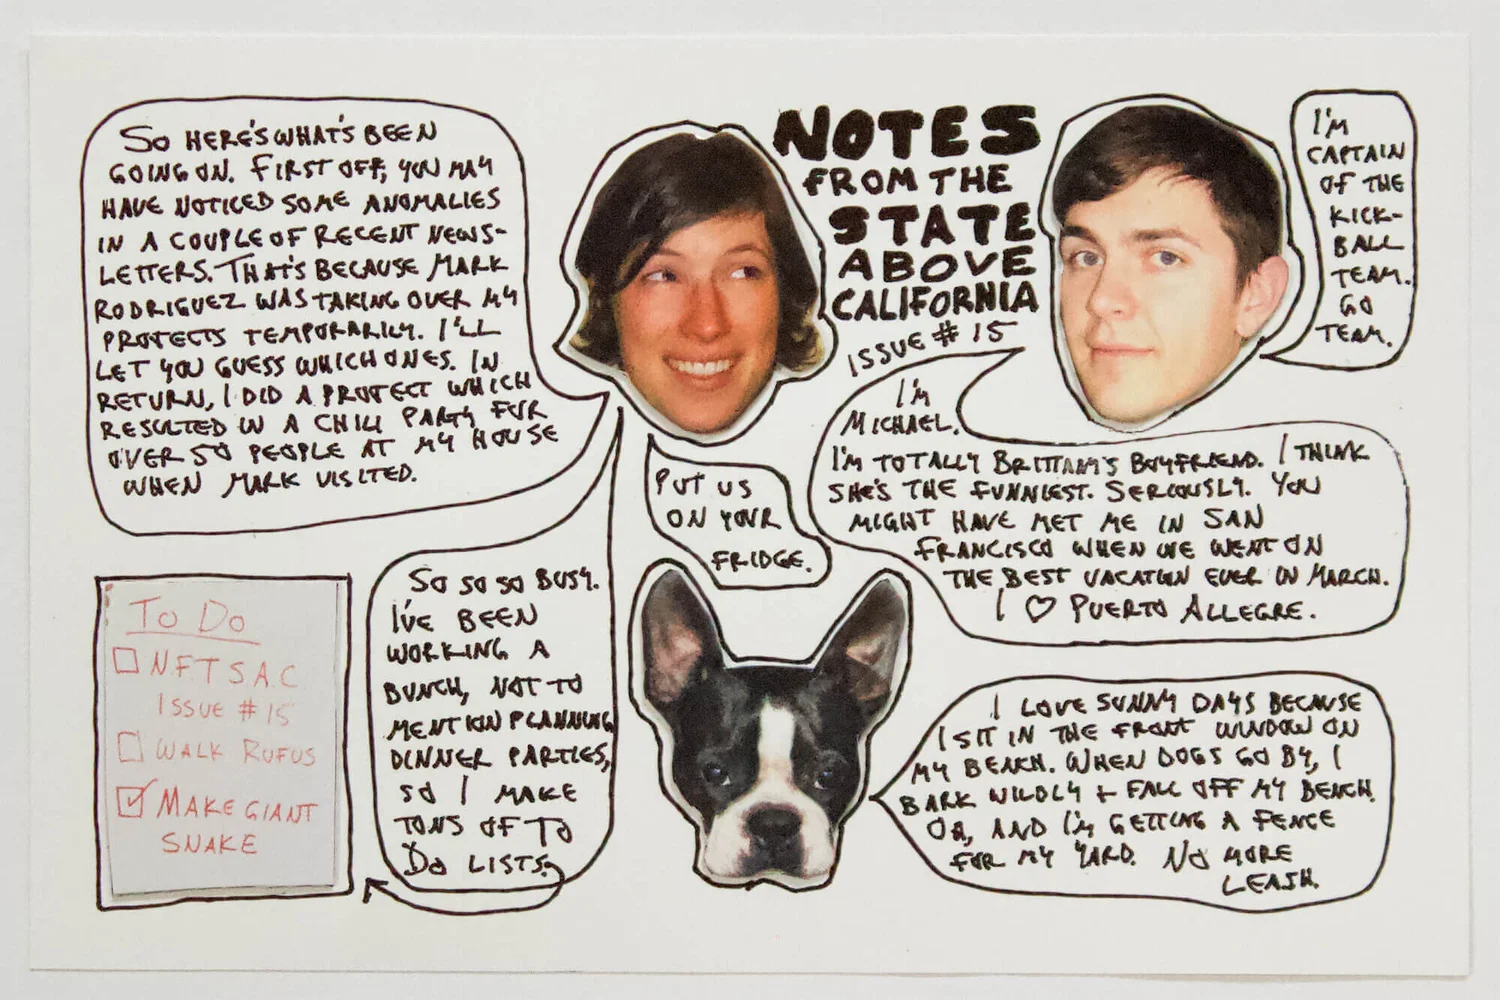 NOTES
FROM THE
STATE
ABOVE
CALIFORNIA
ISSUE # 15
SO HERE'S WHAT'S BEEN
GOING ON. FIRST OFF, YOU MAY
HAVE NOTICED SOME ANOMALIES
IN A COUPLE OF RECENT NEWS-
LETTERS. THAT'S BECAUSE MARK
RODRIGUEZ WAS TAKING OVER MY
PROJECTS TEMPORARILY. I'LL
LET YOU GUESS WHICH ONES. IN
RETURN, I DID A PROJECT WHICH
RESULTED IN A CHILI PARTY FOR
OVER 50 PEOPLE AT MY HOUSE
WHEN MARK VISITED.
I'M
CAPTAIN
OF THE
KICK-
BALL
TEAM.
GO
TEAM.
I'M
MICHAEL.
I'M TOTALLY BRITTANY'S BOYFRIEND. I THINK
SHE'S THE FUNNIEST. SERIOUSLY. YOU
MIGHT HAVE MET ME IN SAN
FRANCISCO WHEN WE WENT ON
THE BEST VACATION EVER IN MARCH.
I ♡ PUERTO ALLEGRE.
PUT US
ON YOUR
FRIDGE.
SO SO SO BUSY.
I'VE BEEN
WORKING A
BUNCH, NOT TO
MENTION PLANNING
DINNER PARTIES,
SO I MAKE
TONS OF TO
DO LISTS.
TO DO
☐ N.F.T.S.A.C
ISSUE # 15
☐ WALK RUFUS
☑ MAKE GIANT
SNAKE
I LOVE SUNNY DAYS BECAUSE
I SIT IN THE FRONT WINDOW ON
MY BENCH. WHEN DOGS GO BY, I
BARK WILDLY + FALL OFF MY BENCH.
OH, AND I'M GETTING A FENCE
FOR MY YARD. NO MORE
LEASH.